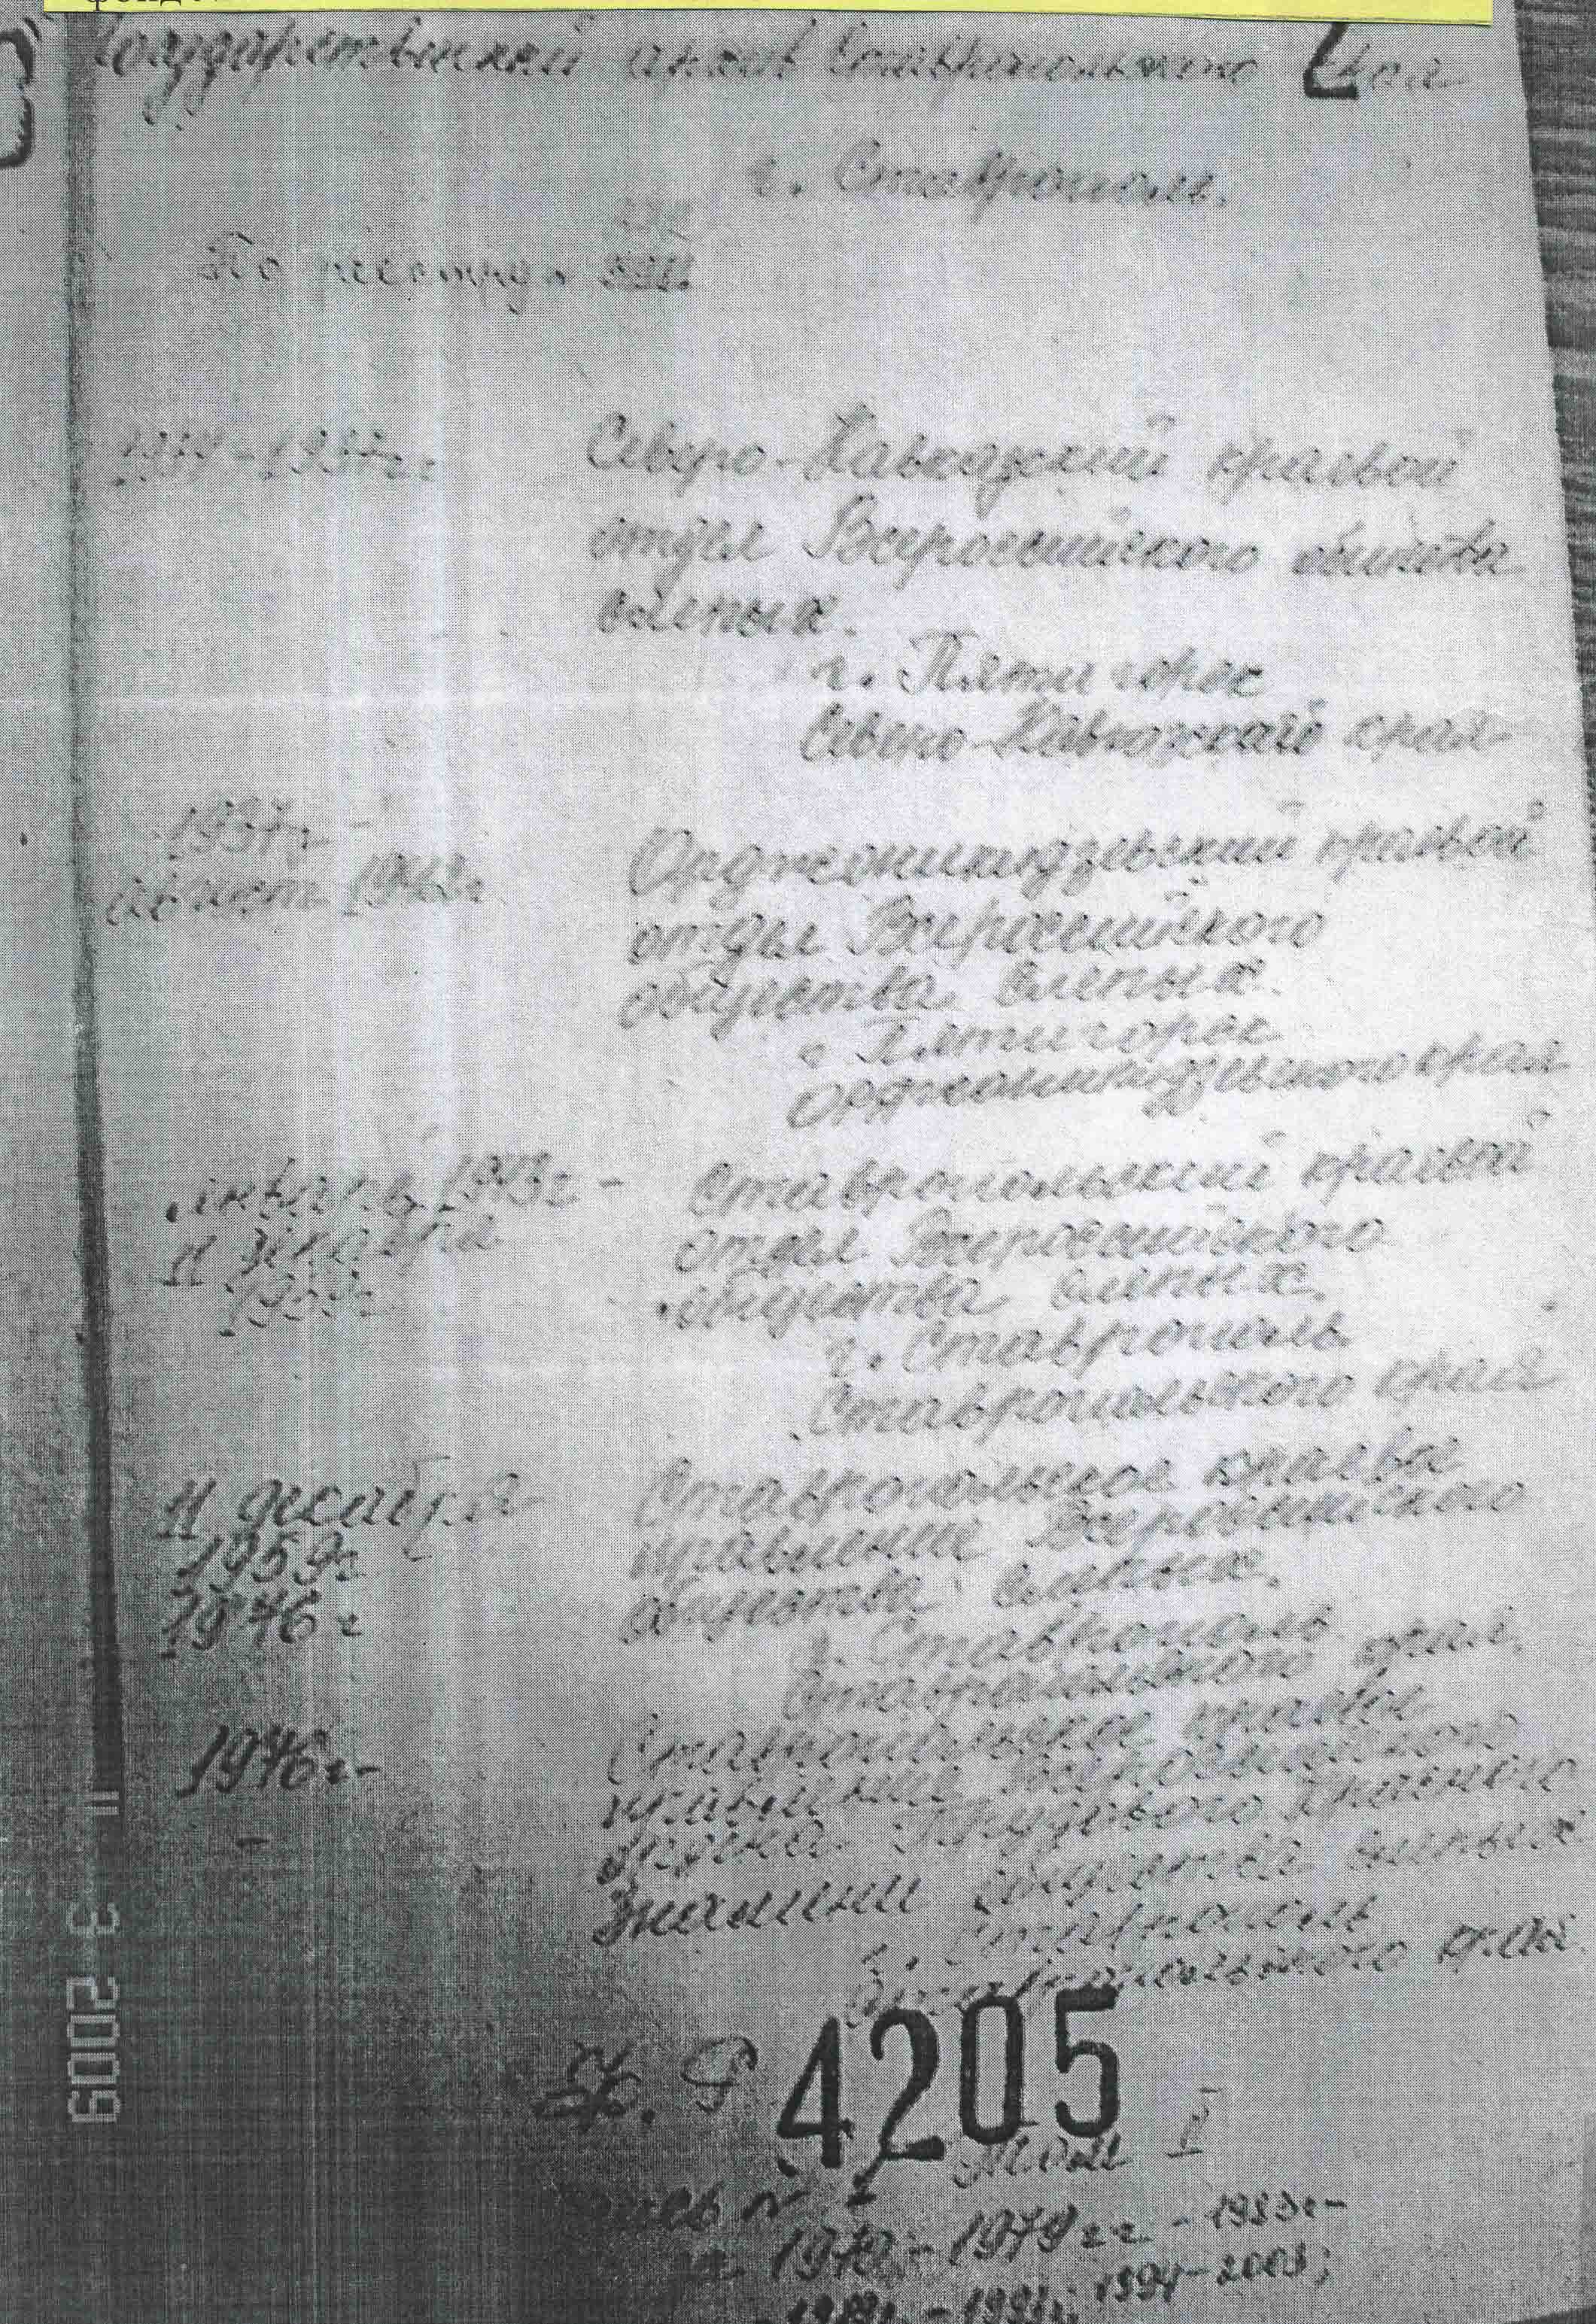 Государственный архив Ставропольского края
г. Ставрополь.
По реестру
Северо-Кавказский краевой
отдел Всероссийского общества
слепых.
г. Пятигорск
Северо-Кавказского края
1937г -
август 1942г
Орджоникидзевский краевой
отдел Всероссийского
общества слепых.
г. Пятигорск
Орджоникидзевского края
1943г -
11 декабря
Ставропольский краевой
отдел Всероссийского
общества слепых.
г. Ставрополь
Ставропольского края
11 декабря
1959г
1976г
Ставропольское краевое
правление Всероссийского
общества слепых.
г. Ставрополь
Ставропольского края.
1976г-
Ставропольское краевое
правление Всероссийского
ордена Трудового Красного
Знамени общества слепых
г. Ставрополь
Ставропольского края.
Ф. Р 4205
том II
1979гг - 1983г-
1994-2003;
11 3 2009